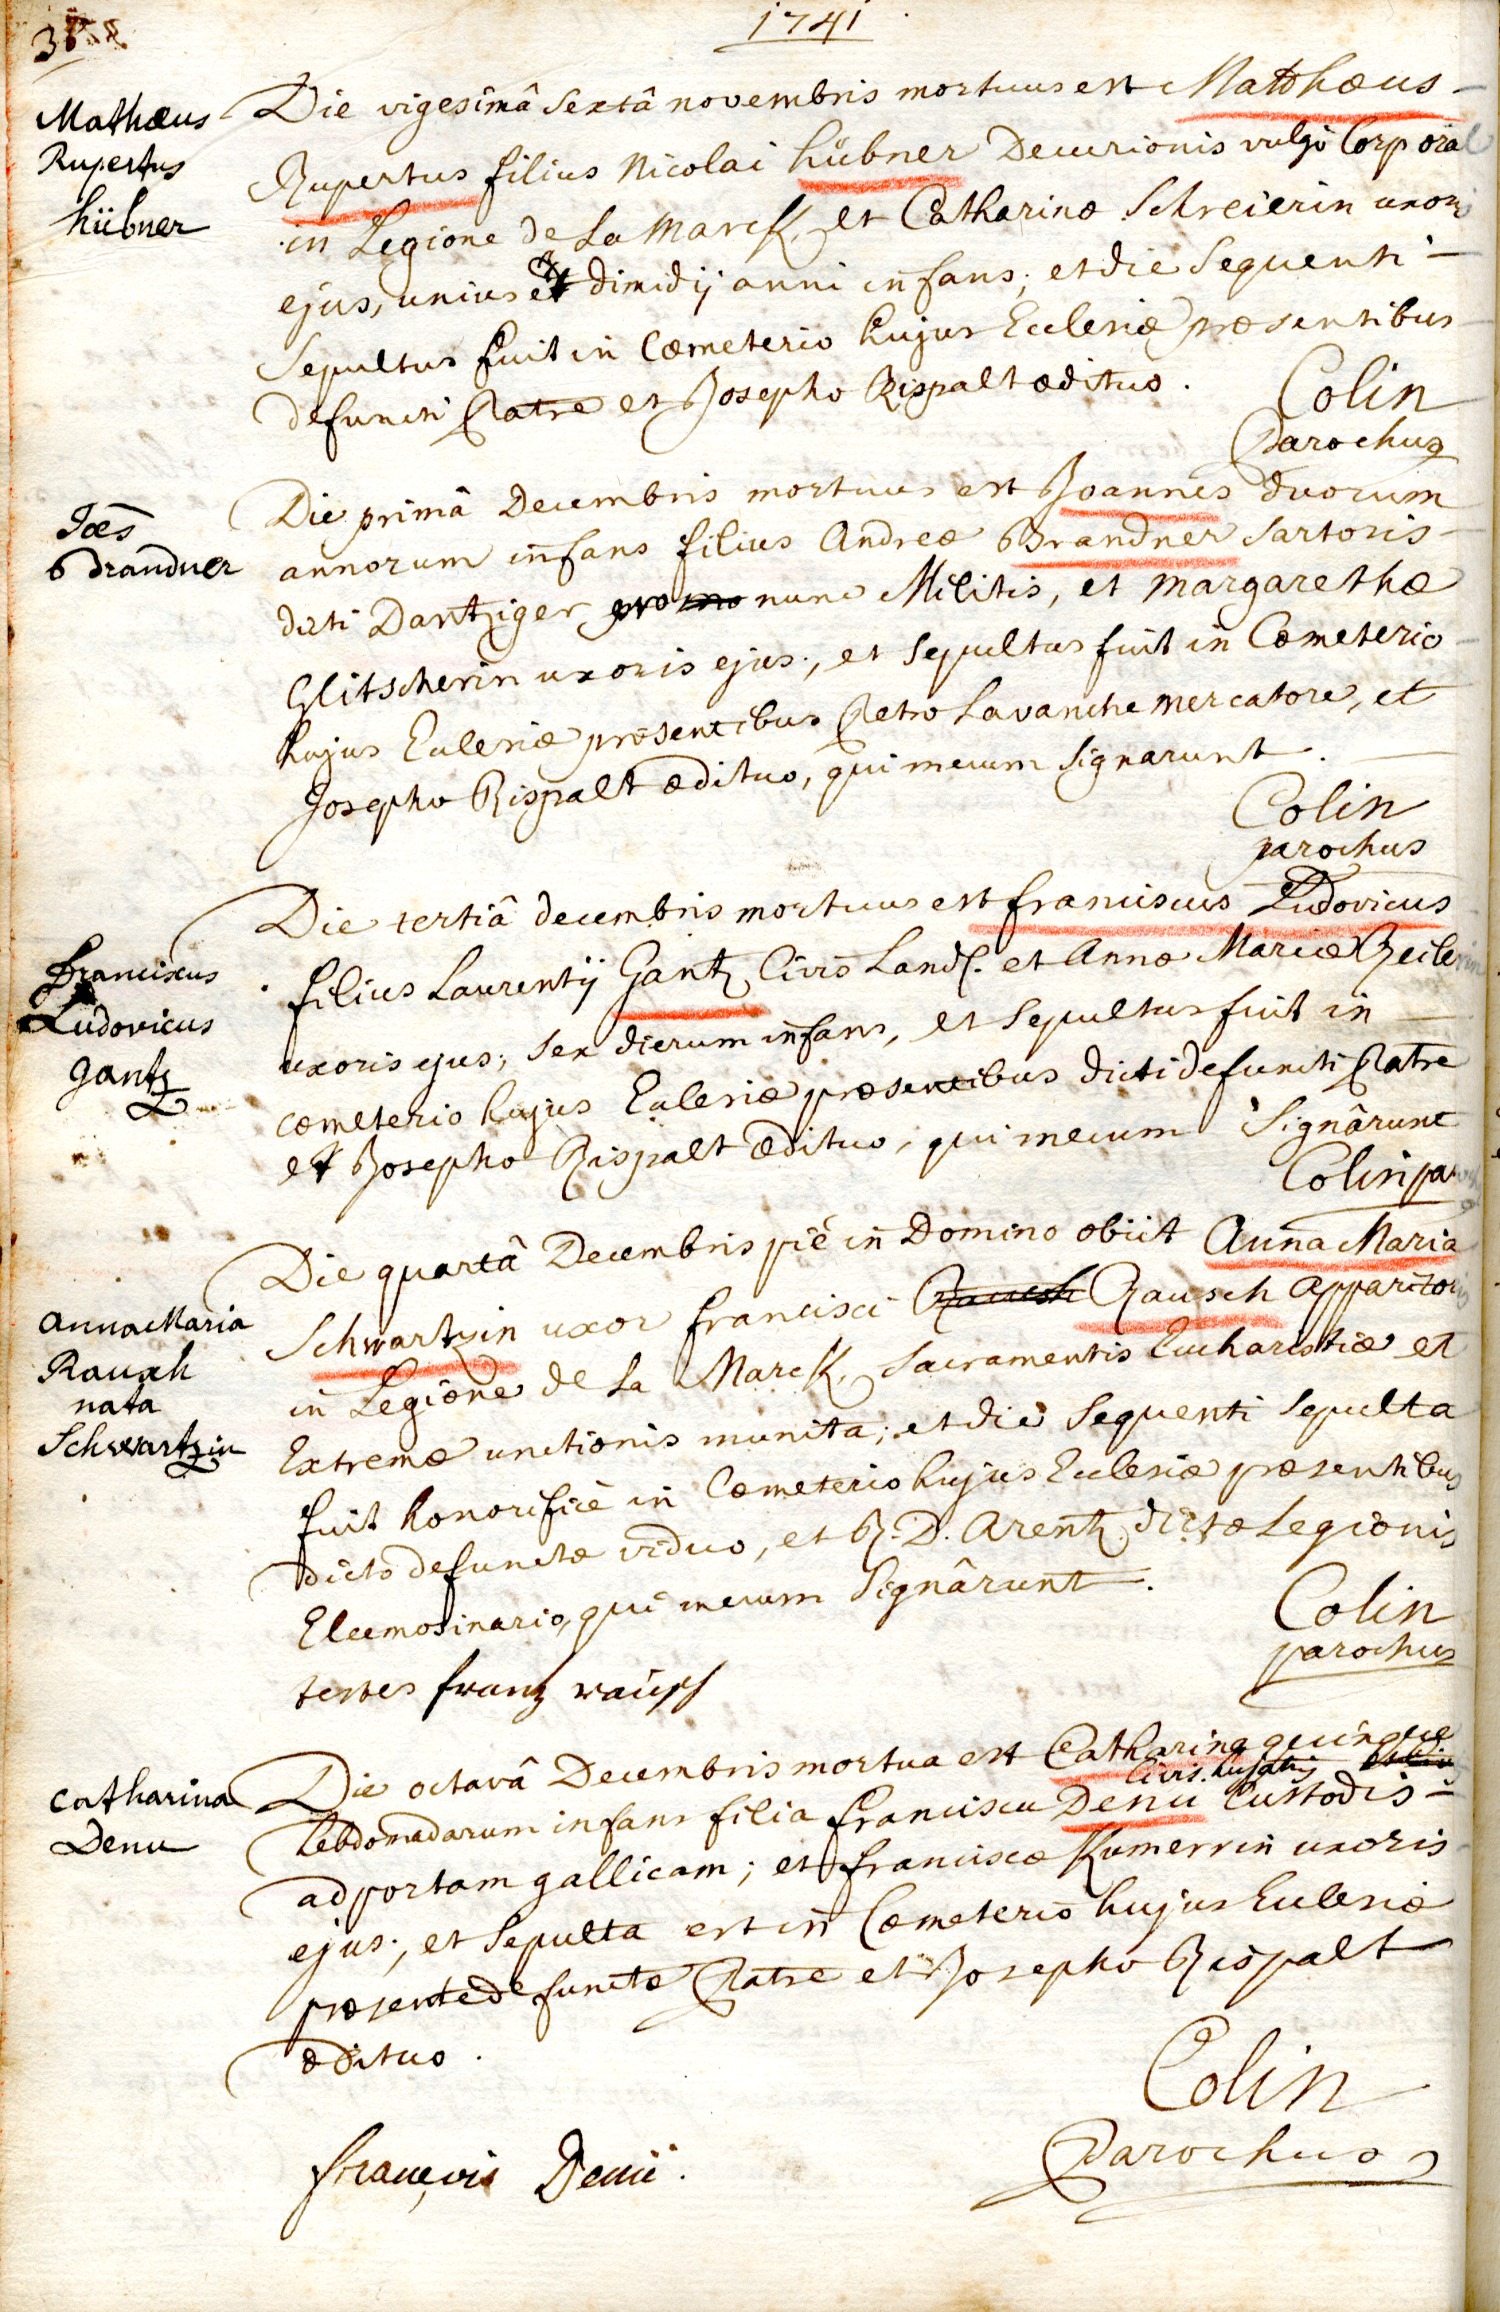 1741
Mathæus
Rupertus
hübner
Die vigesimâ Sextâ novembris mortuus est Matthæus
Rupertus filius Nicolai hübner Decurionis vulgò Corporal
in Legione de La Marck, et Catharinæ Schreierin uxoris
ejus, unius et dimidij anni infans; et die Sequenti
Sepultus fuit in Cœmeterio hujus Ecclesiæ præsentibus
defuncti Patre et Josepho Rispalt ædituo.
Colin
Parochus
Joẽs
Brandner
Die primâ Decembris mortuus est Joannes duorum
annorum infans filius Andreæ Brandner Sartoris
dicti Dantziger nunc Militis, et Margarethæ
Glitscherin uxoris ejus; et Sepultus fuit in Cœmeterio
hujus Ecclesiæ præsentibus Petro Lavanche mercatore, et
Josepho Rispalt ædituo, qui mecum Signarunt.
Colin
parochus
Franciscus
Ludovicus
Gantz
Die tertiâ decembris mortuus est franciscus Ludovicus
filius Laurentij Gantz Civis Land. et Annæ Mariæ
uxoris ejus; Sex dierum infans, et Sepultus fuit in
cœmeterio hujus Ecclesiæ præsentibus dicti defuncti Patre
et Josepho Rispalt Ædituo, qui mecum Signârunt
Colin par
Anna Maria
Rausch
nata
Schwartzin
Die quartâ Decembris piè in Domino obiit Anna Maria
Schwartzin uxor Francisci Rausch Rausch Apparitoris
in Legione de La Marck, Sacramentis Eucharistiæ et
Extremæ unctionis munita; et die Sequenti Sepulta
fuit honorificè in Cœmeterio hujus Ecclesiæ præsentibus
dicto defunctæ viduo, et R. D. Arentz dictæ Legionis
Eleemosinario, qui mecum Signârunt.
Colin
parochus
testes franz rausch
Catharina
Denu
Die octavâ Decembris mortua est Catharina quinque
Civis hujatis
hebdomadarum infans filia Francisci Denu Custodis
ad portam gallicam; et franciscæ Kumerrin uxoris
ejus; et Sepulta est in Cœmeterio hujus Ecclesiæ
præsente defunctæ Patre et Josepho Rispalt
ædituo.
Colin
Parochus
françois Denü.